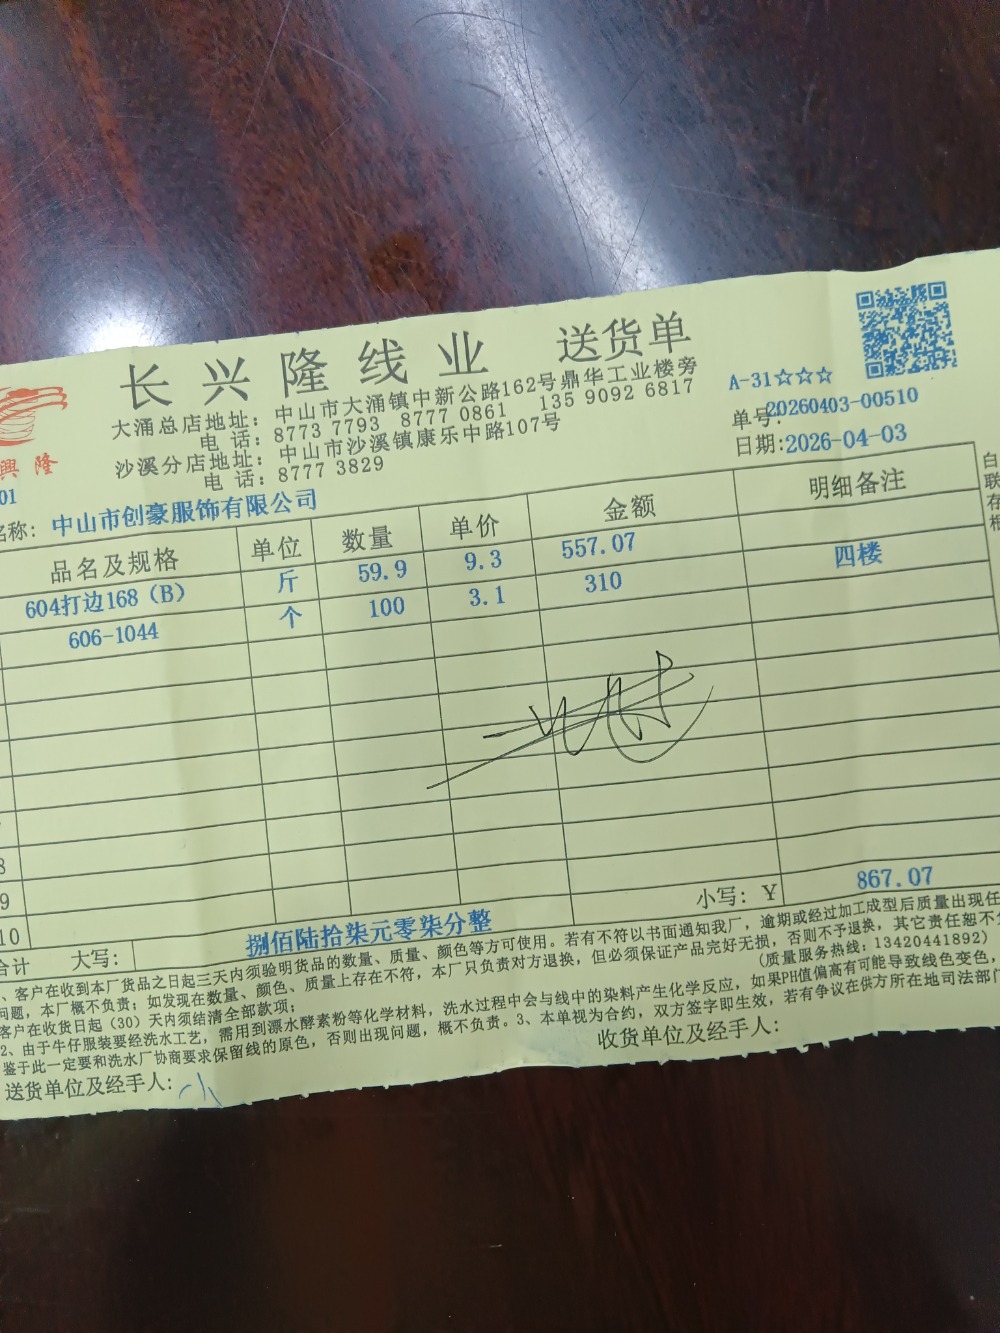 长兴隆线业 送货单
大涌总店地址：中山市大涌镇中新公路162号鼎华工业楼旁
电 话：8773 7793 8777 0861 135 9092 6817
沙溪分店地址：中山市沙溪镇康乐中路107号
电 话：8777 3829
興隆
A-31☆☆☆
单号:20260403-00510
日期:2026-04-03
01
名称: 中山市创豪服饰有限公司
品名及规格 单位 数量 单价 金额 明细备注
604打边168（B） 斤 59.9 9.3 557.07
606-1044 个 100 3.1 310 四楼
8
9
10
合计 大写: 捌佰陆拾柒元零柒分整 小写: ¥ 867.07
、客户在收到本厂货品之日起三天内须验明货品的数量、质量、颜色等方可使用。若有不符以书面通知我厂，逾期或经过加工成型后质量出现任
问题，本厂概不负责；如发现在数量、颜色、质量上存在不符，本厂只负责对方退换，但必须保证产品完好无损，否则不予退换，其它责任恕不
客户在收货日起（30）天内须结清全部款项； （质量服务热线：13420441892）
2、由于牛仔服装要经洗水工艺，需用到漂水酵素粉等化学材料，洗水过程中会与线中的染料产生化学反应，如果PH值偏高有可能导致线色变色，
鉴于此一定要和洗水厂协商要求保留线的原色，否则出现问题，概不负责。3、本单视为合约，双方签字即生效，若有争议在供方所在地司法部门
送货单位及经手人: 小 收货单位及经手人:
白
联
存
根